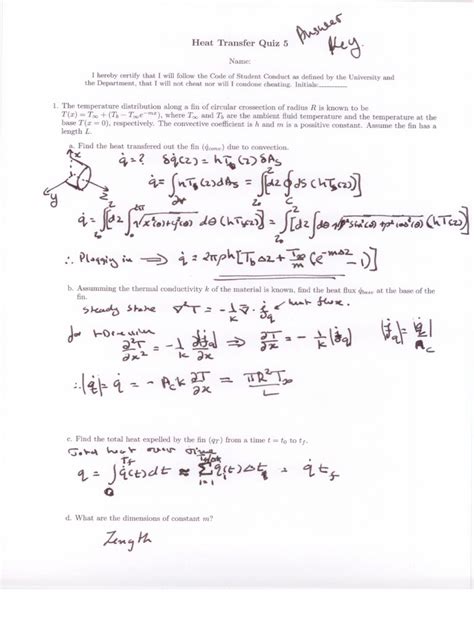 Heat Transfer Quiz 5
Answer
Key.
Name:
I hereby certify that I will follow the Code of Student Conduct as defined by the University and
the Department, that I will not cheat nor will I condone cheating. Initials:
1. The temperature distribution along a fin of circular crossection of radius R is known to be
T(x) = T∞ + (Tb − T∞e^−mx), where T∞ and Tb are the ambient fluid temperature and the temperature at the
base T(x = 0), respectively. The convective coefficient is h and m is a positive constant. Assume the fin has a
length L.
a. Find the heat transfered out the fin (q̇conv) due to convection.
q̇ = ? δq̇(z) = hTb(z) δAs
q̇ = ∫hTb(z)dAs = ∫[dz ∮ds(hTb(z))]
∴ Plugging in ⟹ q̇ = 2πρh[TbΔz + T∞/m (e^−mΔz − 1)]
b. Assumming the thermal conductivity k of the material is known, find the heat flux q̇base at the base of the
fin.
steady state ∇²T = −1/k ∇·j̇q heat flux.
for 1-Dimension
∂²T/∂x² = −1/k ∂j̇q/∂x ⟹ ∂T/∂x = −1/k |j̇q| |j̇q| = q̇/Ac
∴ |q̇| = q̇ = −Ack ∂T/∂x = πR²T∞/L
c. Find the total heat expelled by the fin (qT) from a time t = t0 to tf.
Total heat over time
q = ∫q̇(t)dt ≈ Σ q̇i(t)Δti = q̇ tf
d. What are the dimensions of constant m?
Length